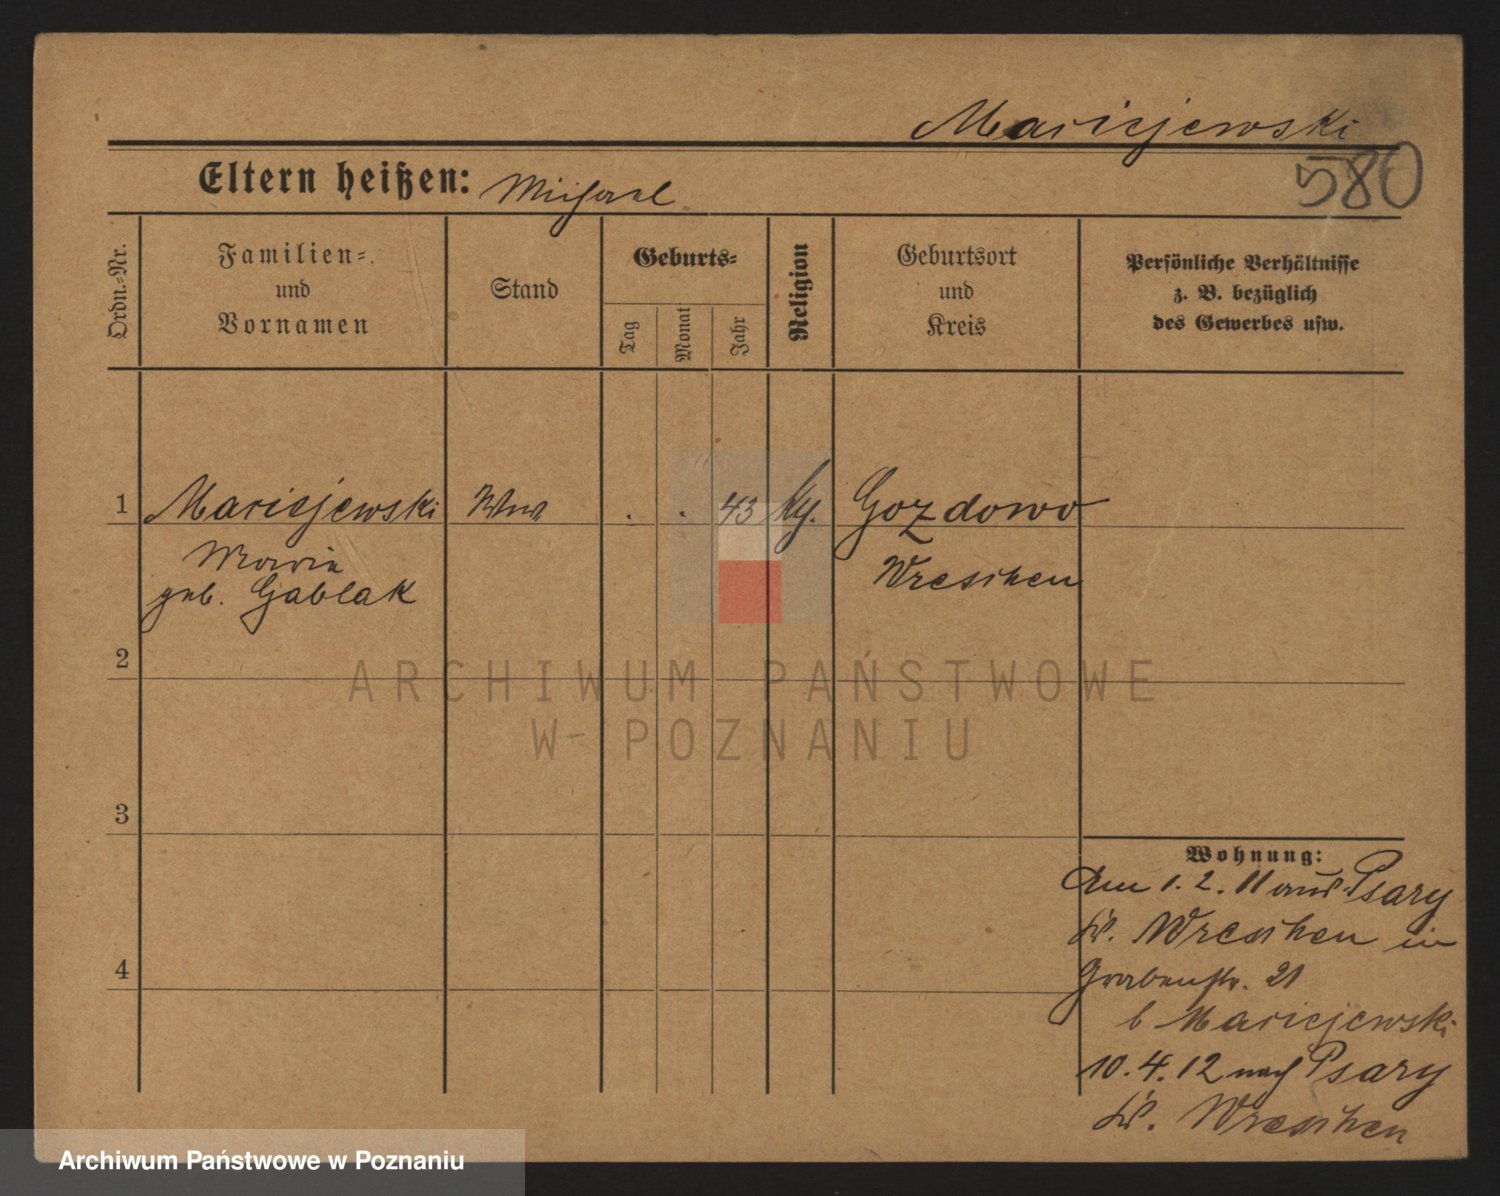 Maricjewski
580
Eltern heißen: Michael
Ordn.-Nr.
Familien-
und
Vornamen
Stand
Geburts-
Tag
Monat
Jahr
Religion
Geburtsort
und
Kreis
Persönliche Verhältnisse
z. B. bezüglich
des Gewerbes usw.
1 Maricjewski Wwe . . 43 kg. Gozdowo
Maria Wreschen
geb. Gablak
2
ARCHIWUM PAŃSTWOWE
W POZNANIU
3
Wohnung:
Am 1. 2. 11 aus Psary
Kr. Wreschen in
4
Grabenstr. 21
b Maricjewski
10. 4. 12 nach Psary
Kr. Wreschen
Archiwum Państwowe w Poznaniu